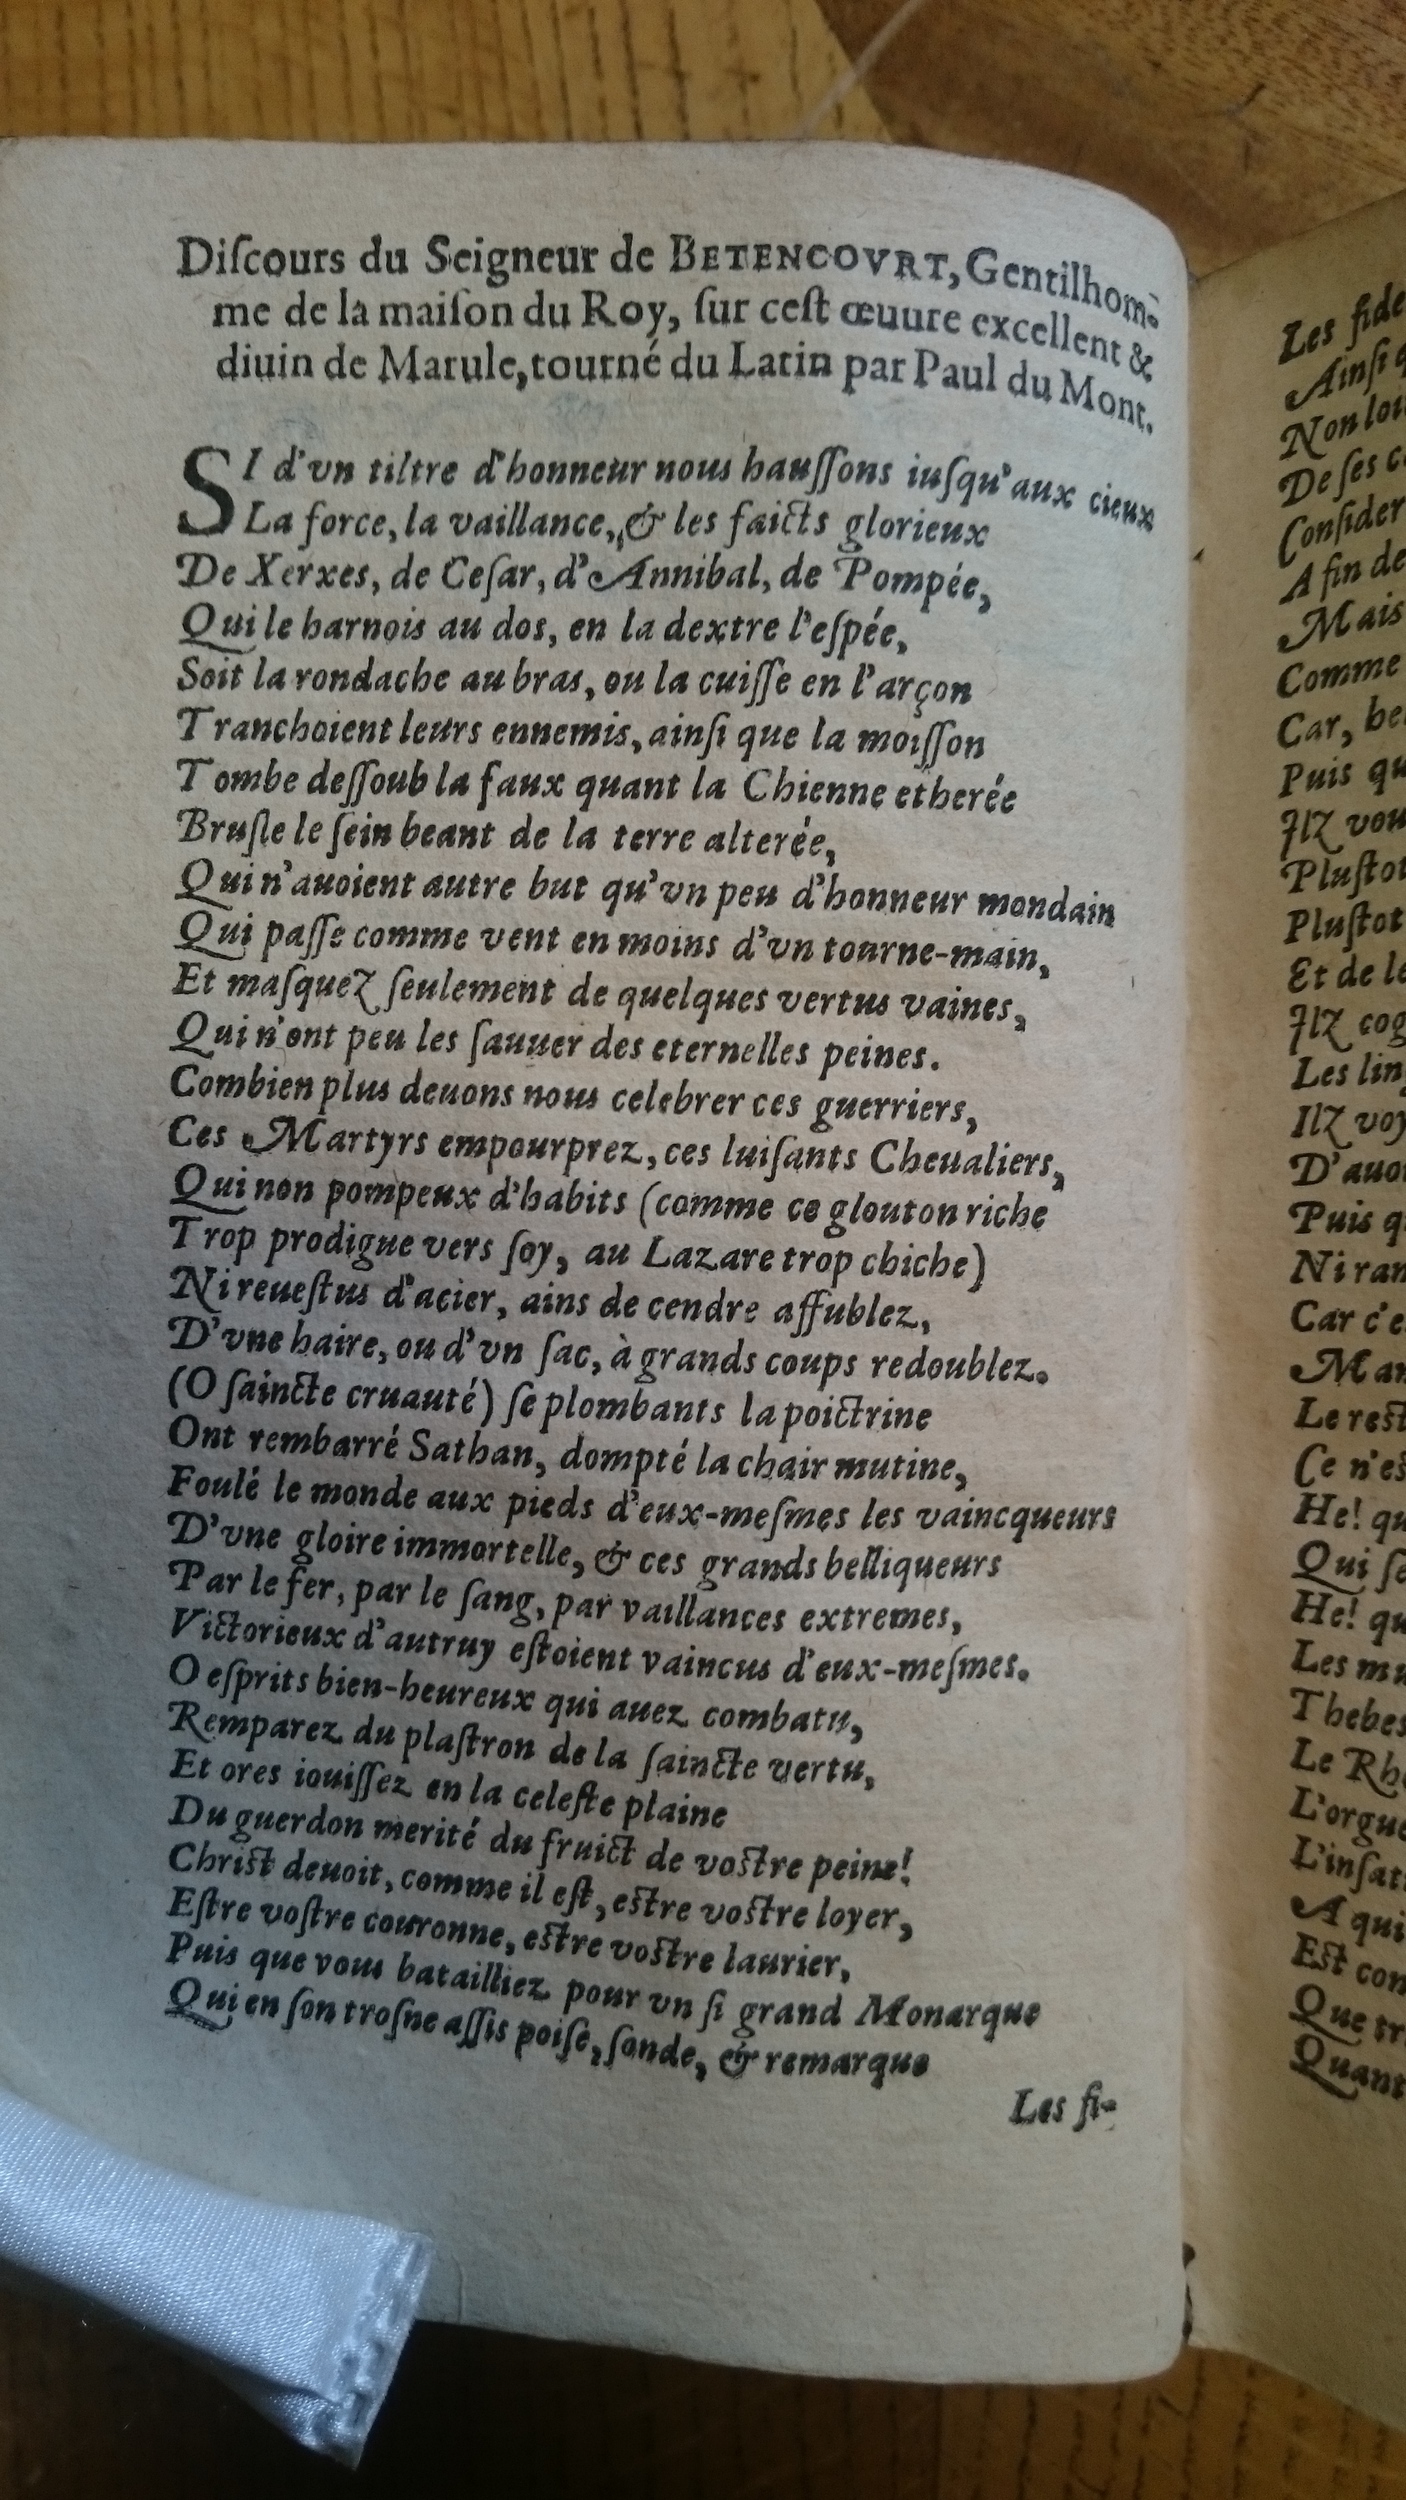 Diſcours du Seigneur de BETENCOVRT, Gentilhom-
me de la maiſon du Roy, ſur ceſt œuure excellent &
diuin de Marule, tourné du Latin par Paul du Mont.
SI d'vn tiltre d'honneur nous hauſſons iuſqu'aux cieux
La force, la vaillance, & les faicts glorieux
De Xerxes, de Ceſar, d'Annibal, de Pompée,
Qui le harnois au dos, en la dextre l'eſpée,
Soit la rondache au bras, ou la cuiſſe en l'arçon
Tranchoient leurs ennemis, ainſi que la moiſſon
Tombe deſſoub la faux quant la Chienne etherée
Bruſle le ſein beant de la terre alterée,
Qui n'auoient autre but qu'vn peu d'honneur mondain
Qui paſſe comme vent en moins d'vn tourne-main,
Et maſquez ſeulement de quelques vertus vaines,
Qui n'ont peu les ſauuer des eternelles peines.
Combien plus deuons nous celebrer ces guerriers,
Ces Martyrs empourprez, ces luiſants Cheualiers,
Qui non pompeux d'habits (comme ce glouton riche
Trop prodigue vers ſoy, au Lazare trop chiche)
Ni reueſtus d'acier, ains de cendre affublez,
D'vne haire, ou d'vn ſac, à grands coups redoublez.
(O ſaincte cruauté) ſe plombants la poictrine
Ont rembarré Sathan, dompté la chair mutine,
Foulé le monde aux pieds d'eux-meſmes les vaincqueurs
D'vne gloire immortelle, & ces grands belliqueurs
Par le fer, par le ſang, par vaillances extremes,
Victorieux d'autruy eſtoient vaincus d'eux-meſmes.
O eſprits bien-heureux qui auez combatu,
Remparez du plaſtron de la ſaincte vertu,
Et ores iouiſſez en la celeſte plaine
Du guerdon merité du fruict de voſtre peine!
Chriſt deuoit, comme il eſt, eſtre voſtre loyer,
Eſtre voſtre couronne, eſtre voſtre laurier,
Puis que vous batailliez pour vn ſi grand Monarque
Qui en ſon troſne aſſis poiſe, ſonde, & remarque
Les fi-
Les fide
Ainſi q
Non lou
De ſes c
Conſider
A fin de
Mais
Comme
Car, be
Puis qu
Ilz vou
Pluſtot
Pluſtot
Et de le
Ilz cog
Les lin
Ilz voy
D'auo
Puis q
Ni ran
Car c'e
Mar
Le reſt
Ce n'eſ
He! qu
Qui ſe
He! qu
Les mu
Thebes
Le Rho
L'orgue
L'inſat
A qui
Eſt con
Que tr
Quant